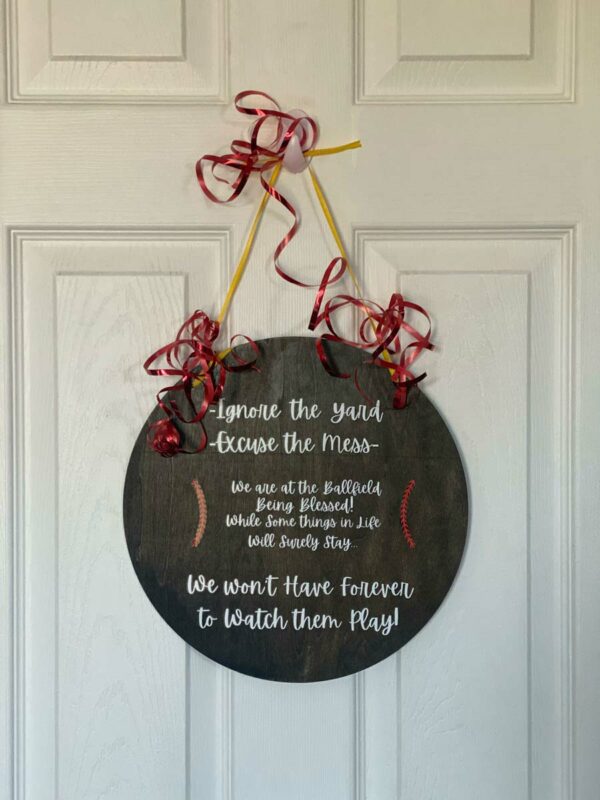 -Ignore the Yard
-Excuse the Mess-
We are at the Ballfield
Being Blessed!
While Some things in Life
Will Surely Stay...
We won't Have Forever
to Watch them Play!